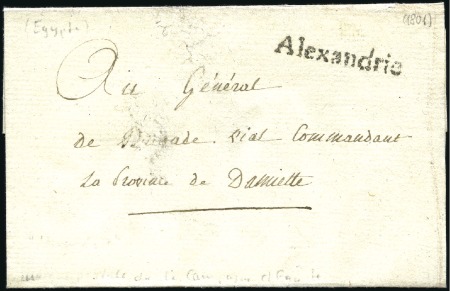 (Egypte)
(1801)
Alexandrie
Au Général
de Brigade Vial Commandant
La Province de Damiette